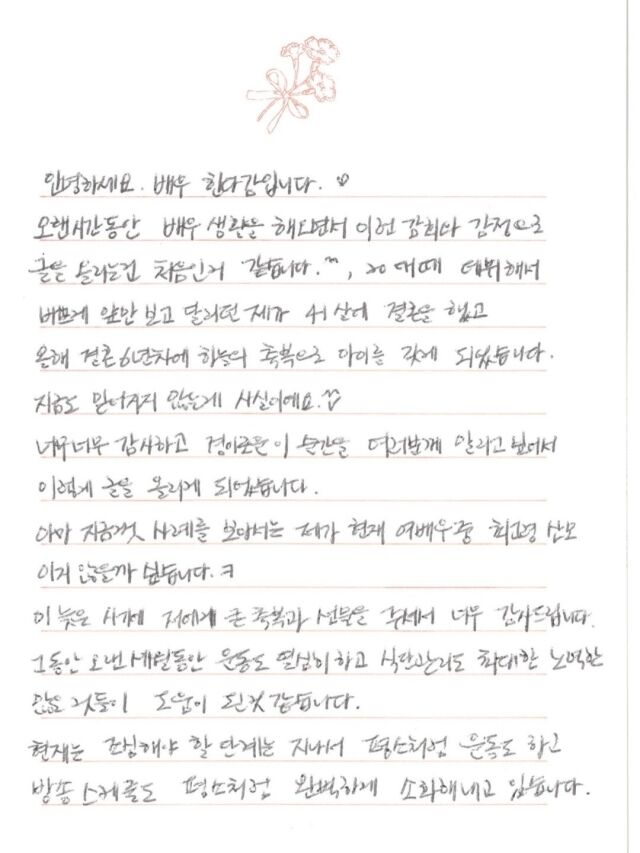 안녕하세요. 배우 한다감입니다.
오랜시간동안 배우 생활을 해오면서 이런 감회와 감정으로
글을 올리는건 처음인거 같습니다.^^, 20대때 데뷔해서
바쁘게 앞만 보고 달리던 제가 41살에 결혼을 했고
올해 결혼 6년차에 하늘의 축복으로 아이를 갖게 되었습니다.
지금도 믿어지지 않는게 사실이에요.
너무너무 감사하고 경이로운 이 순간을 여러분께 알리고 싶어서
이렇게 글을 올리게 되었습니다.
아마 지금껏 사례를 보아서는 제가 현재 여배우중 최고령 산모
이지 않을까 싶습니다.ㅋ
이 늦은 시기에 저에게 큰 축복과 선물을 주셔서 너무 감사드립니다.
그동안 오랜 세월동안 운동도 열심히 하고 식단관리도 최대한 노력한
많은 것들이 도움이 된것 같습니다.
현재는 조심해야 할 단계는 지나서 평소처럼 운동도 하고
방송 스케쥴도 평소처럼 완벽하게 소화해내고 있습니다.